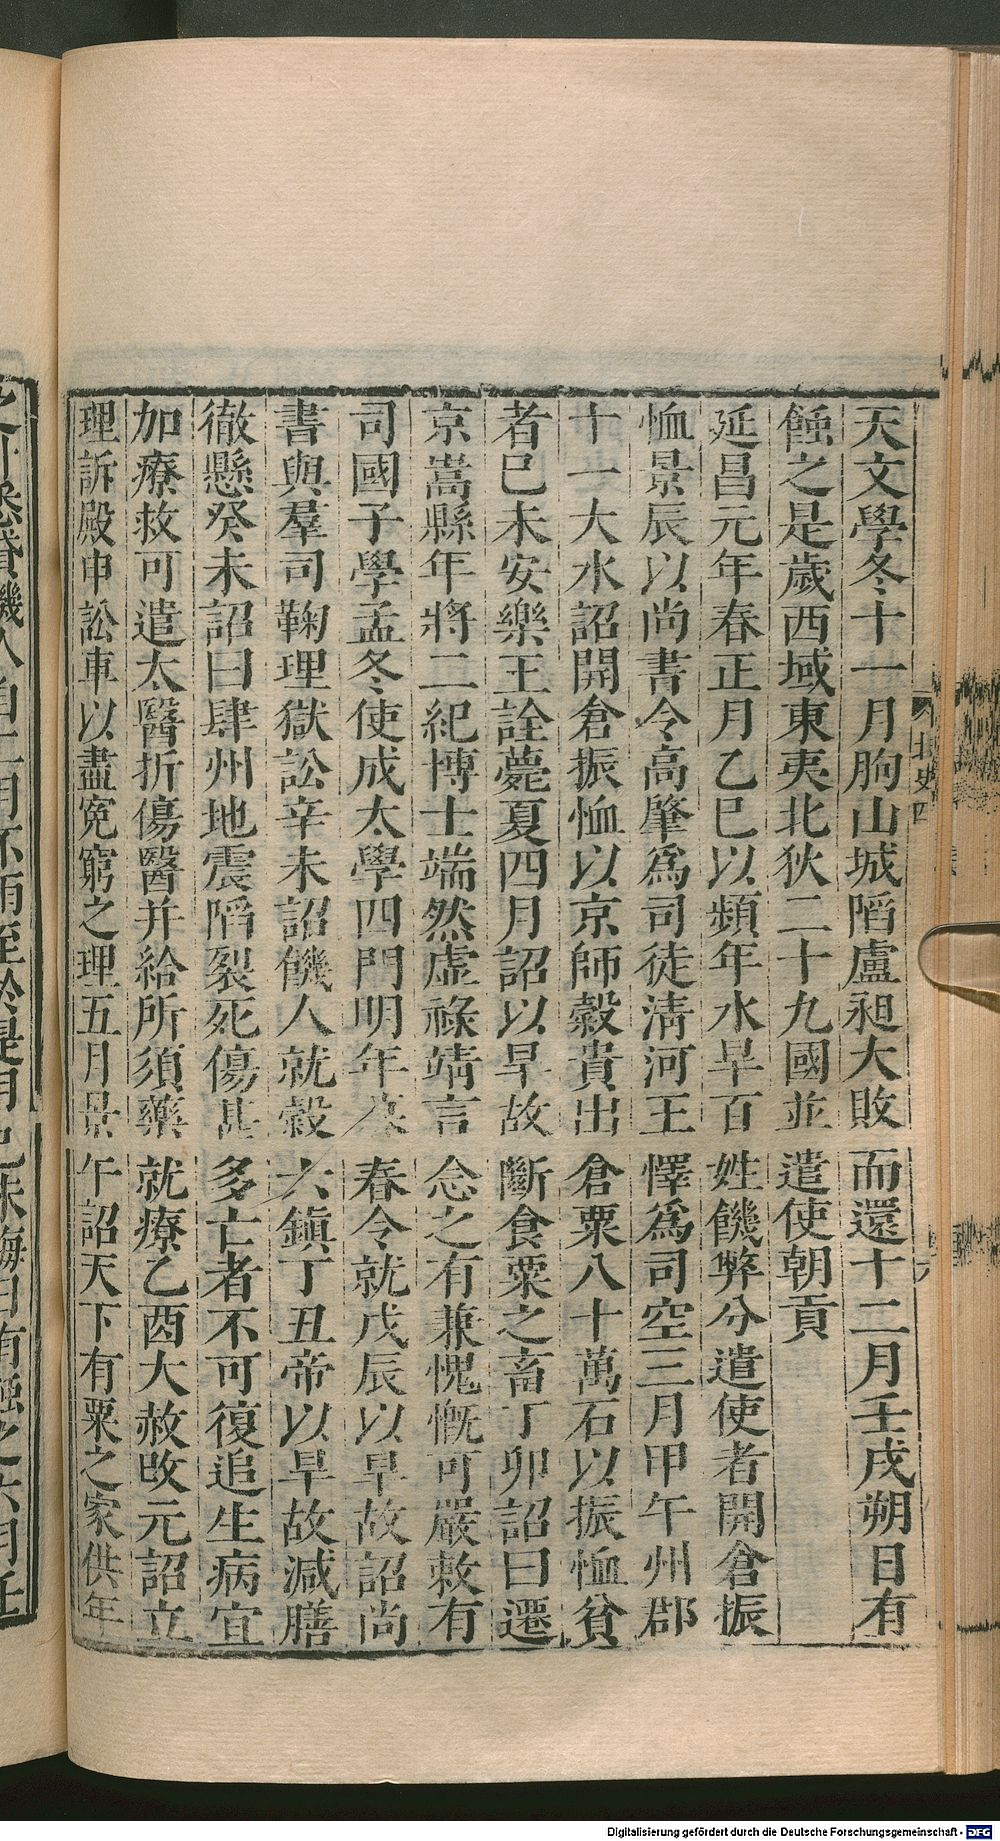 天文學冬十一月朐山城陷盧昶大敗而還十二月壬戌朔日有
蝕之是歲西域東夷北狄二十九國並遣使朝貢
延昌元年春正月乙巳以頻年水旱百姓饑弊分遣使者開倉振
恤景辰以尚書令高肇爲司徒淸河王懌爲司空三月甲午州郡
十一大水詔開倉振恤以京師穀貴出倉粟八十萬石以振恤貧
者巳未安樂王詮薨夏四月詔以旱故斷食粟之畜丁卯詔曰遷
京嵩縣年將二紀博士端然虛祿靖言念之有兼愧慨可嚴敕有
司國子學孟冬使成太學四門明年暮春令就戊辰以旱故詔尚
書與羣司鞠理獄訟辛未詔饑人就穀六鎭丁丑帝以旱故減膳
徹懸癸未詔曰肆州地震陷裂死傷甚多亡者不可復追生病宜
加療救可遣太醫折傷醫并給所須藥就療乙酉大赦改元詔立
理訴殿申訟車以盡冤窮之理五月景午詔天下有粟之家供年
北史四
Digitalisierung gefördert durch die Deutsche Forschungsgemeinschaft - DFG